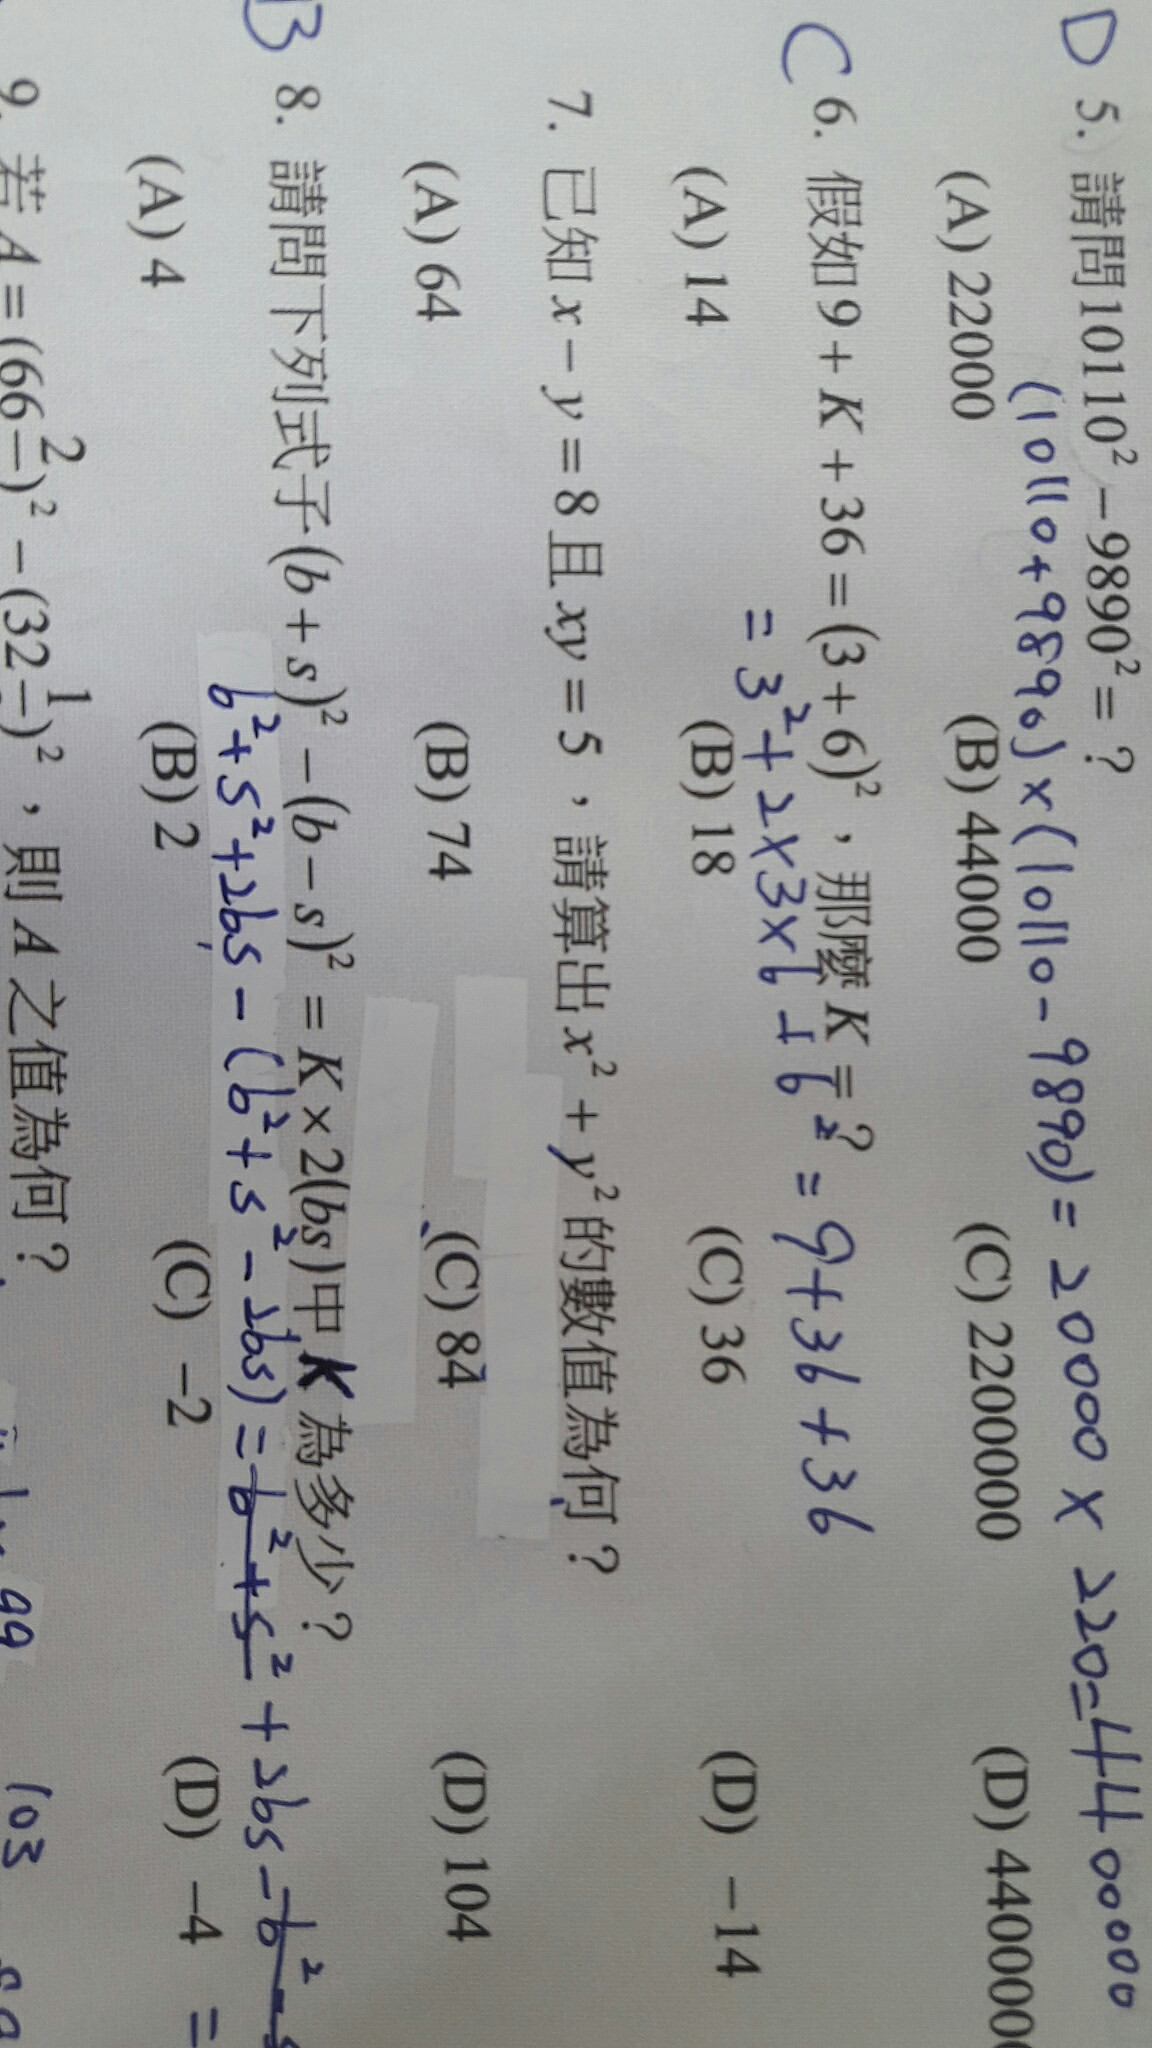 D 5. 請問10110² − 9890² = ?
(10110+9890)×(10110−9890)=20000×220=4400000
(A) 22000 (B) 44000 (C) 2200000 (D) 440000
C 6. 假如9 + K + 36 = (3 + 6)²,那麼K = ?
= 3²+2×3×6+6² = 9+36+36
(A) 14 (B) 18 (C) 36 (D) −14
7. 已知 x − y = 8 且 xy = 5,請算出 x² + y² 的數值為何?
(A) 64 (B) 74 (C) 84 (D) 104
B 8. 請問下列式子(b + s)² − (b − s)² = K × 2(bs)中 K 為多少?
b²+s²+2bs−(b²+s²−2bs)=b²+s²+2bs−b²−
(A) 4 (B) 2 (C) −2 (D) −4 =
9. 若 A = (66 2/)² − (32 1/)²,則 A 之值為何?
99 103